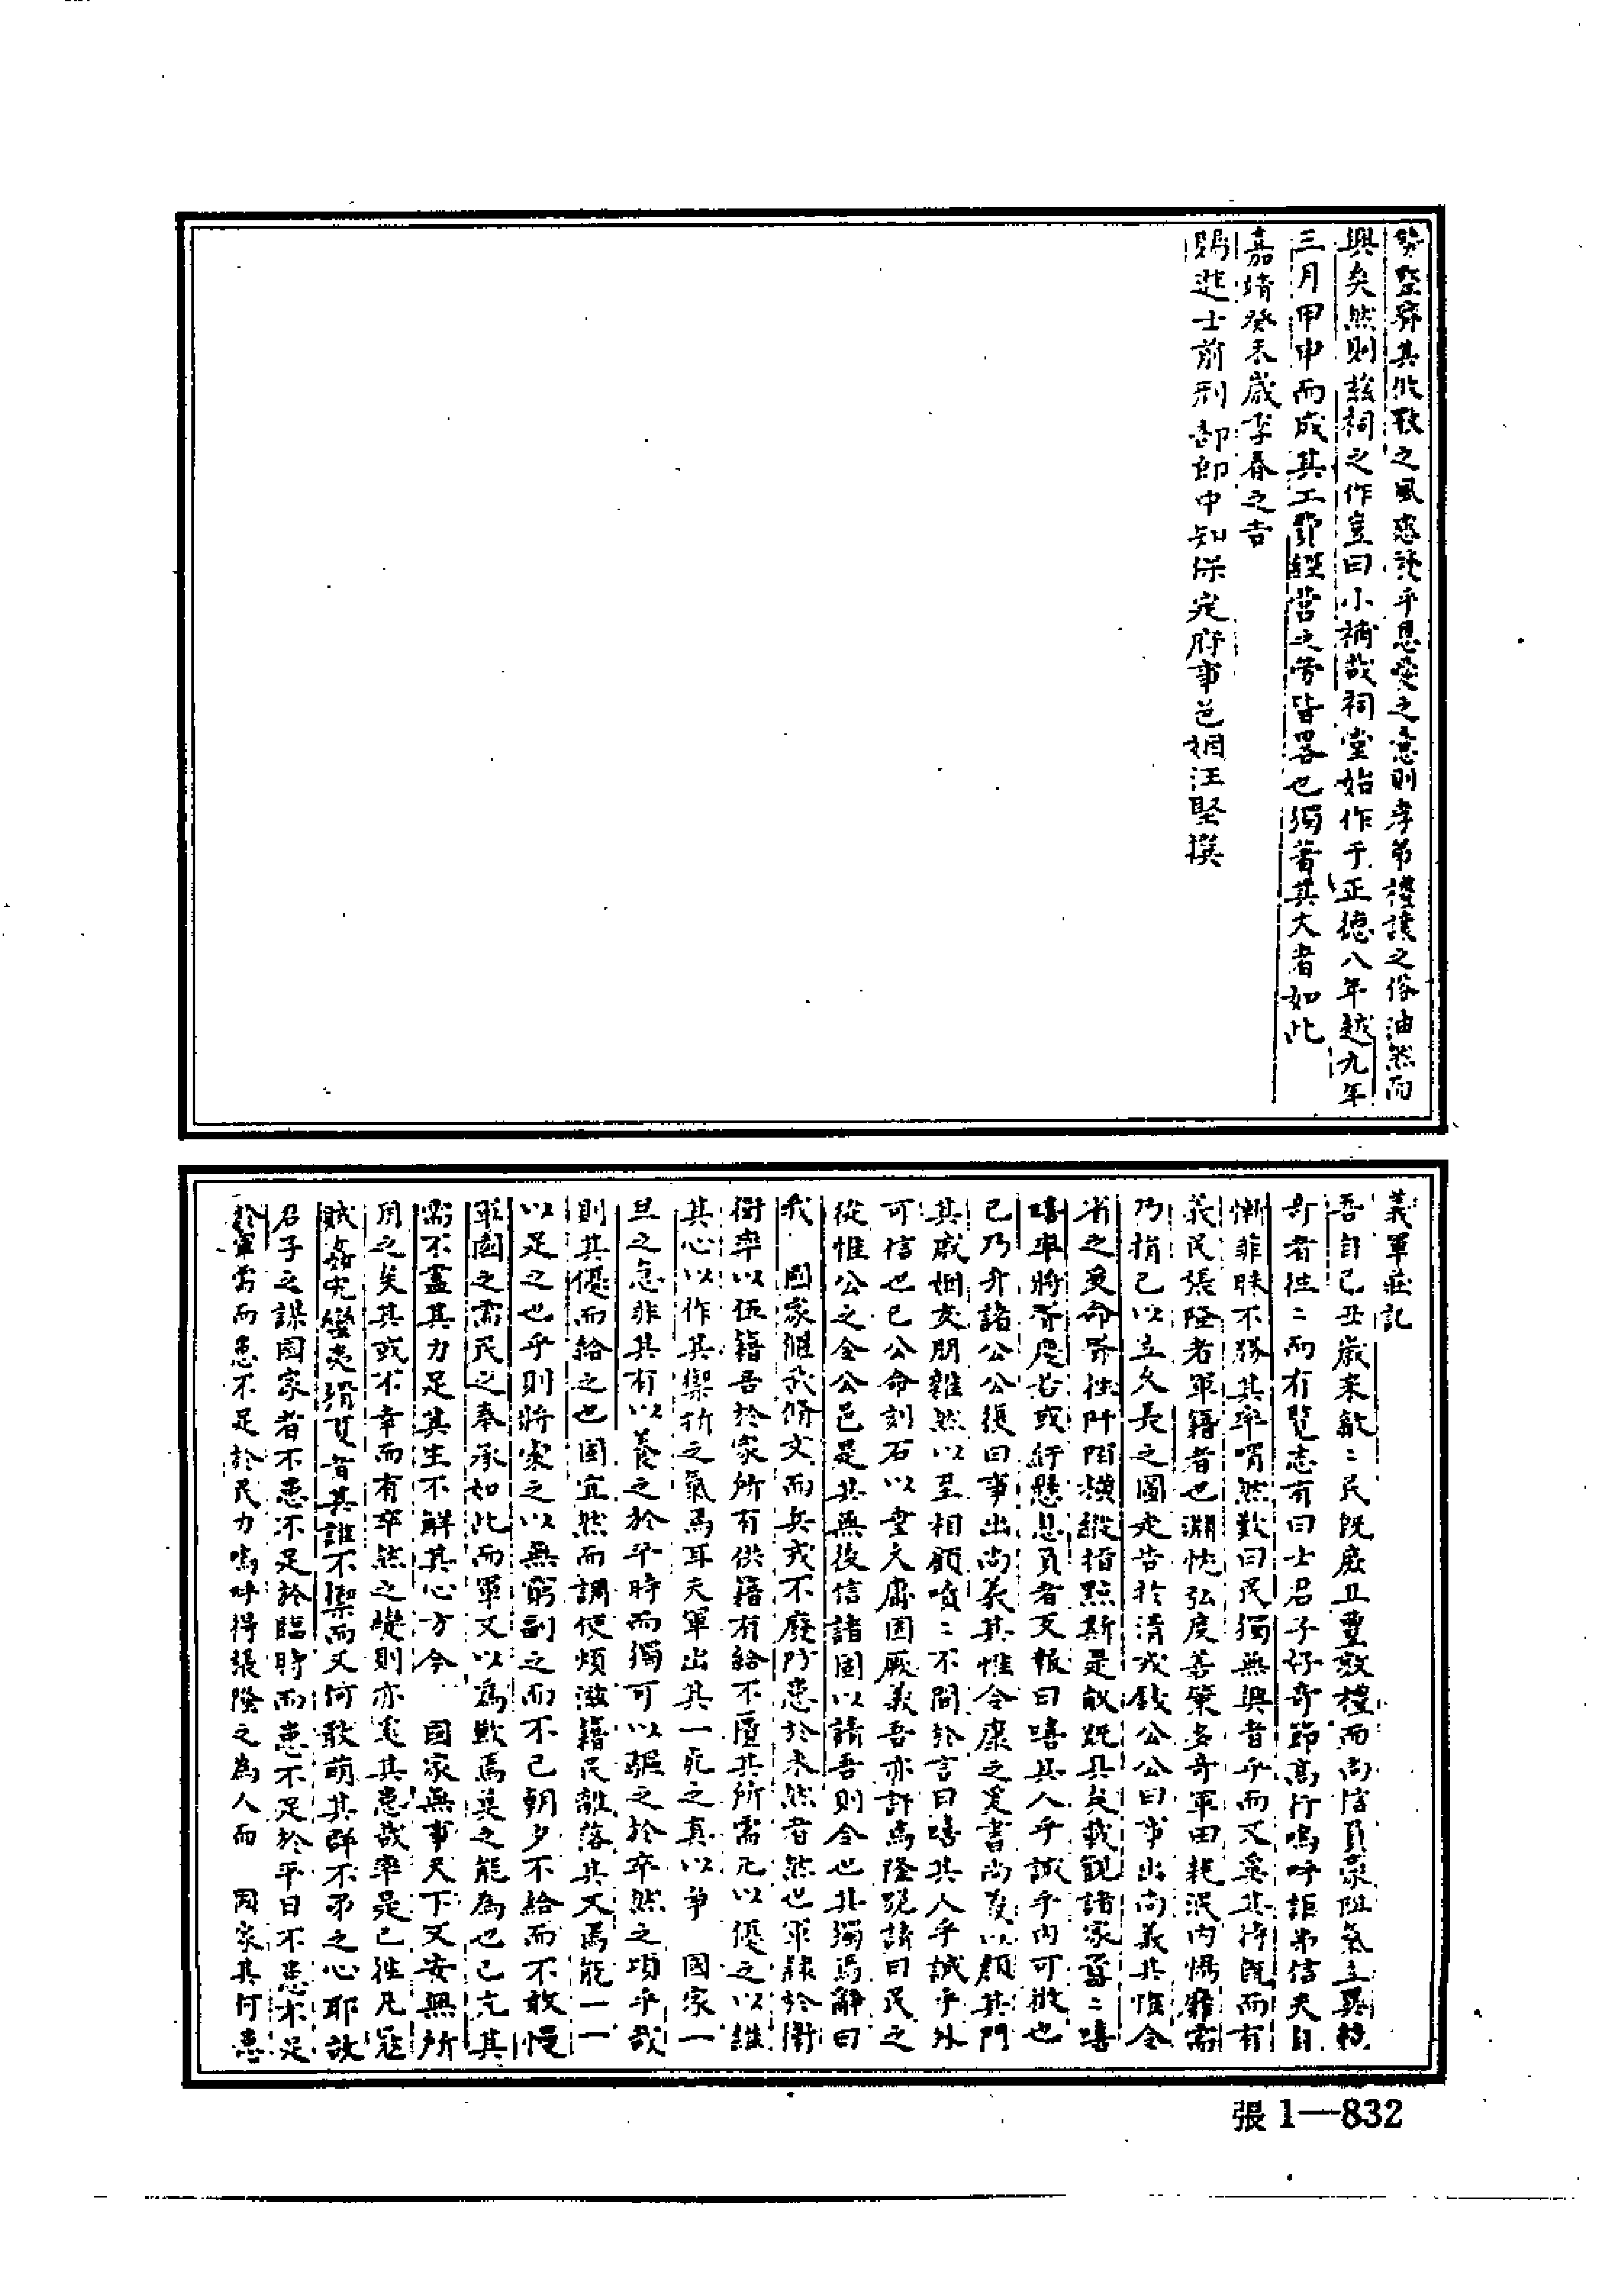 其攸敘之風惑讒乎恩愛之意則孝弟禮讓之俗油然而
興矣然則茲祠之作豈曰小補哉祠堂始作于正德八年越九年
三月甲申而成其工費經營之勞皆畧也獨著其大者如此
嘉靖癸未歲季春之吉
賜進士前刑部郎中知保定府事邑姻汪堅撰
義軍莊記
吾自己丑歲來歙二民既庶且豊敦禮而尚信負豪阻氣立異
奇者往二而有覽志有曰士君子好奇節高行嗚呼詎弗信夫目
慚菲昧不勝其率喟然歎曰民獨無興者乎而又奚其待既而有
義民張隆者軍籍者也淵忱弘度善肇多奇軍田耗泯內惕靡需
乃捐己以立久長之圖走告於清戎錢公公曰事出尚義其惟令
省之爰命胥往阡陌橫縱指點斯是畝既具矣載觀諸家畜二嘻
嘻率將胥慶若或紓懸息負者又報曰嘻其人乎誠乎內可徵也
已乃介諸公公復曰事出尚義其惟令康之爰書尚義以顏其門
其戚姻友朋雜然以至相顧嘖二不間於言曰嘻其人乎誠乎外
可信也已公命刻石以垂久庸固厥義吾亦許焉隆貌請曰民之
從惟公之令公邑是其無後信諸固以請吾則令也其獨焉辭曰
我 國家偃武脩文而兵戎不廢防患於未然者然也軍隸於衛
衛率以伍籍吾於家所有供籍有給不匱其所需凡以優之以維
其心以作其禦折之氣焉耳夫軍出其一死之真以爭 國家一
旦之急非其有以養之於平時而獨可以驅之於卒然之頃乎哉
則其優而給之也固宜然而調使煩滋籍民離落其又焉能一一
以足之也乎則將索之以無窮副之而不已朝夕不給而不敢慢
軍國之需民之奉承如此而軍又以為歉焉奚之能為也已亢其
需不盡其力足其生不解其心方今 國家無事天下又安無所
用之矣其或不幸而有卒然之變則亦寃其患哉率是已往凡寇
賊姦宄蠻夷猾夏者其誰不禦而又何敢萌其群不弔之心耶故
君子之謀國家者不患不足於臨時而患不足於平日不患不足
於軍需而患不足於民力嗚呼得張隆之為人而 國家其何患
張1—832